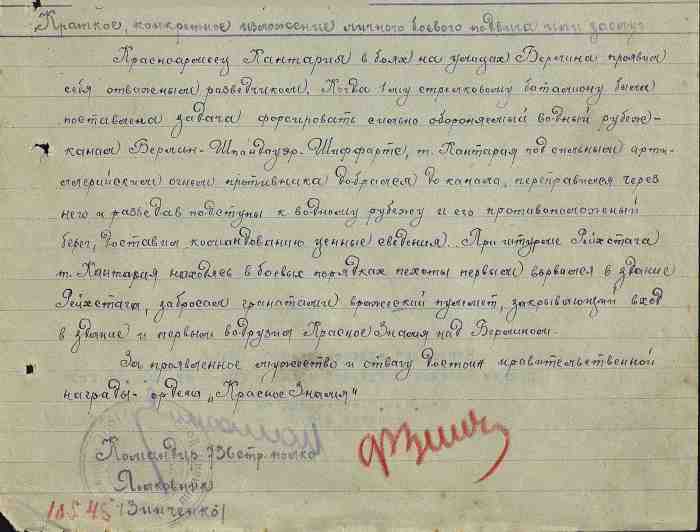 Краткое, конкретное изложение личного боевого подвига или заслуг
Красноармеец Кантария в боях на улицах Берлина проявил
себя отважным разведчиком. Когда 1му стрелковому батальону была
поставлена задача форсировать сильно обороняемый водный рубеж-
канал Берлин-Шпандауэр-Шиффартс, т. Кантария под сильным арти-
ллерийским огнем противника добрался до канала, переправился через
него и разведав подступы к водному рубежу и его противоположный
берег, доставил командованию ценные сведения. При штурме Рейхстага
т. Кантария находясь в боевых порядках пехоты первым ворвался в здание
Рейхстага, забросал гранатами вражеский пулемет, закрывающий вход
в здание и первым водрузил Красное Знамя над Берлином.
За проявленное мужество и отвагу достоин правительственной
награды- ордена „Красное Знамя"
Командир 756 стр. полка
Полковник
/Зинченко/
10.5.45